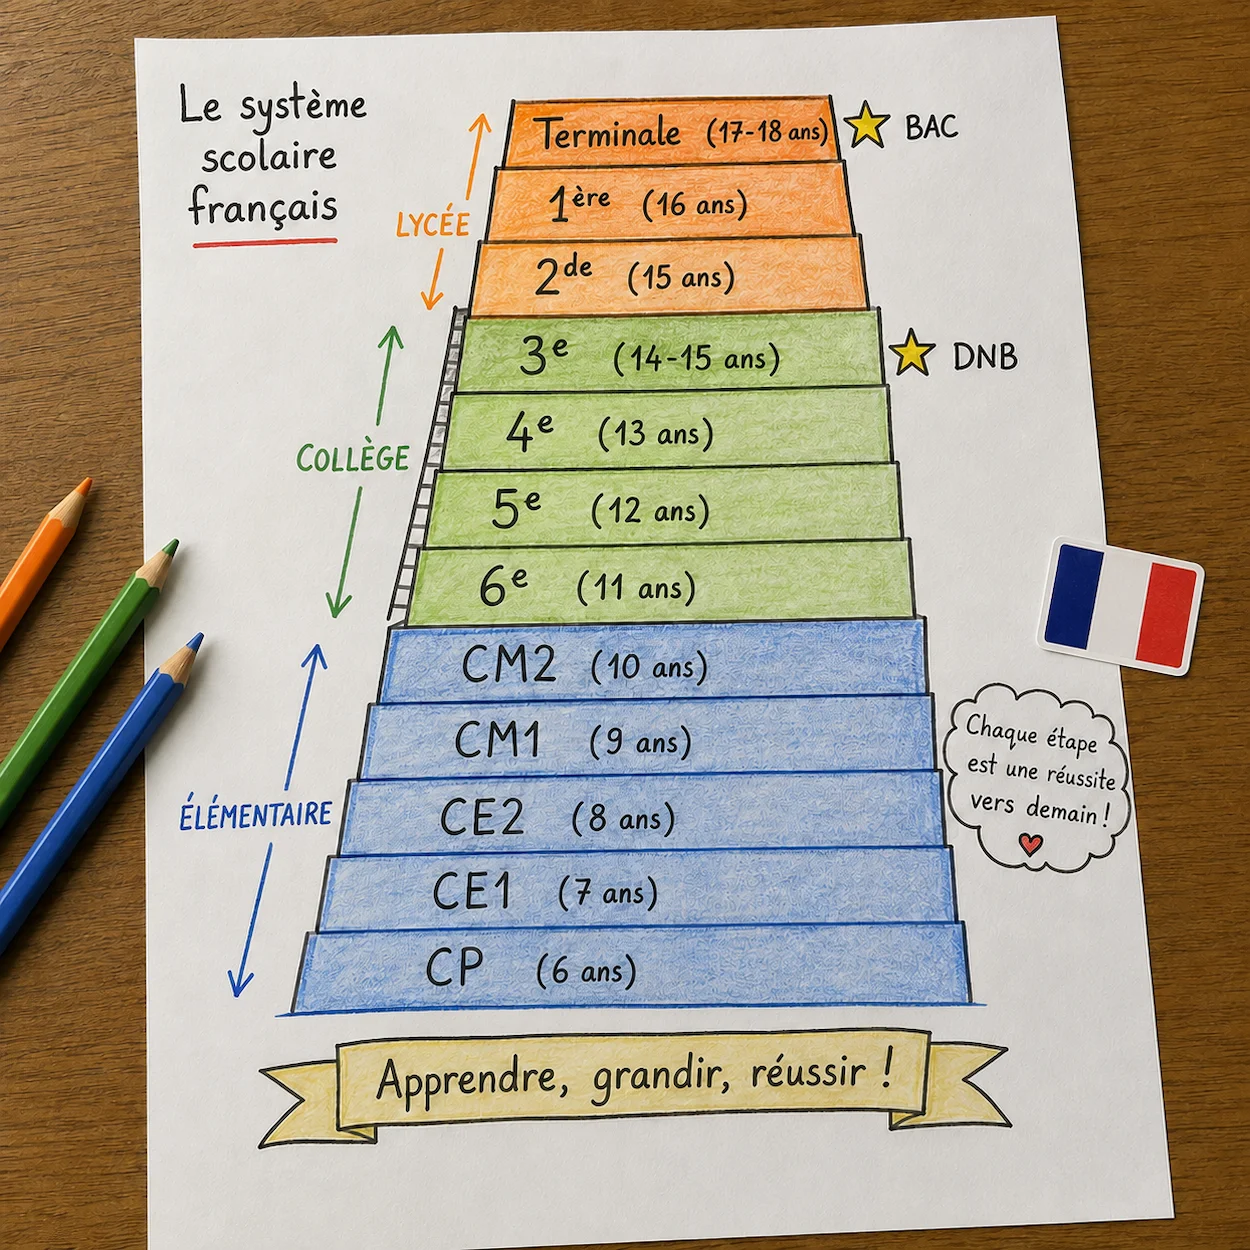 Le système
scolaire
français
Terminale (17-18 ans)
BAC
1ère (16 ans)
LYCÉE
2de (15 ans)
3e (14-15 ans)
DNB
4e (13 ans)
COLLÈGE
5e (12 ans)
6e (11 ans)
CM2 (10 ans)
CM1 (9 ans)
Chaque étape
est une réussite
vers demain !
CE2 (8 ans)
ÉLÉMENTAIRE
CE1 (7 ans)
CP (6 ans)
Apprendre, grandir, réussir !